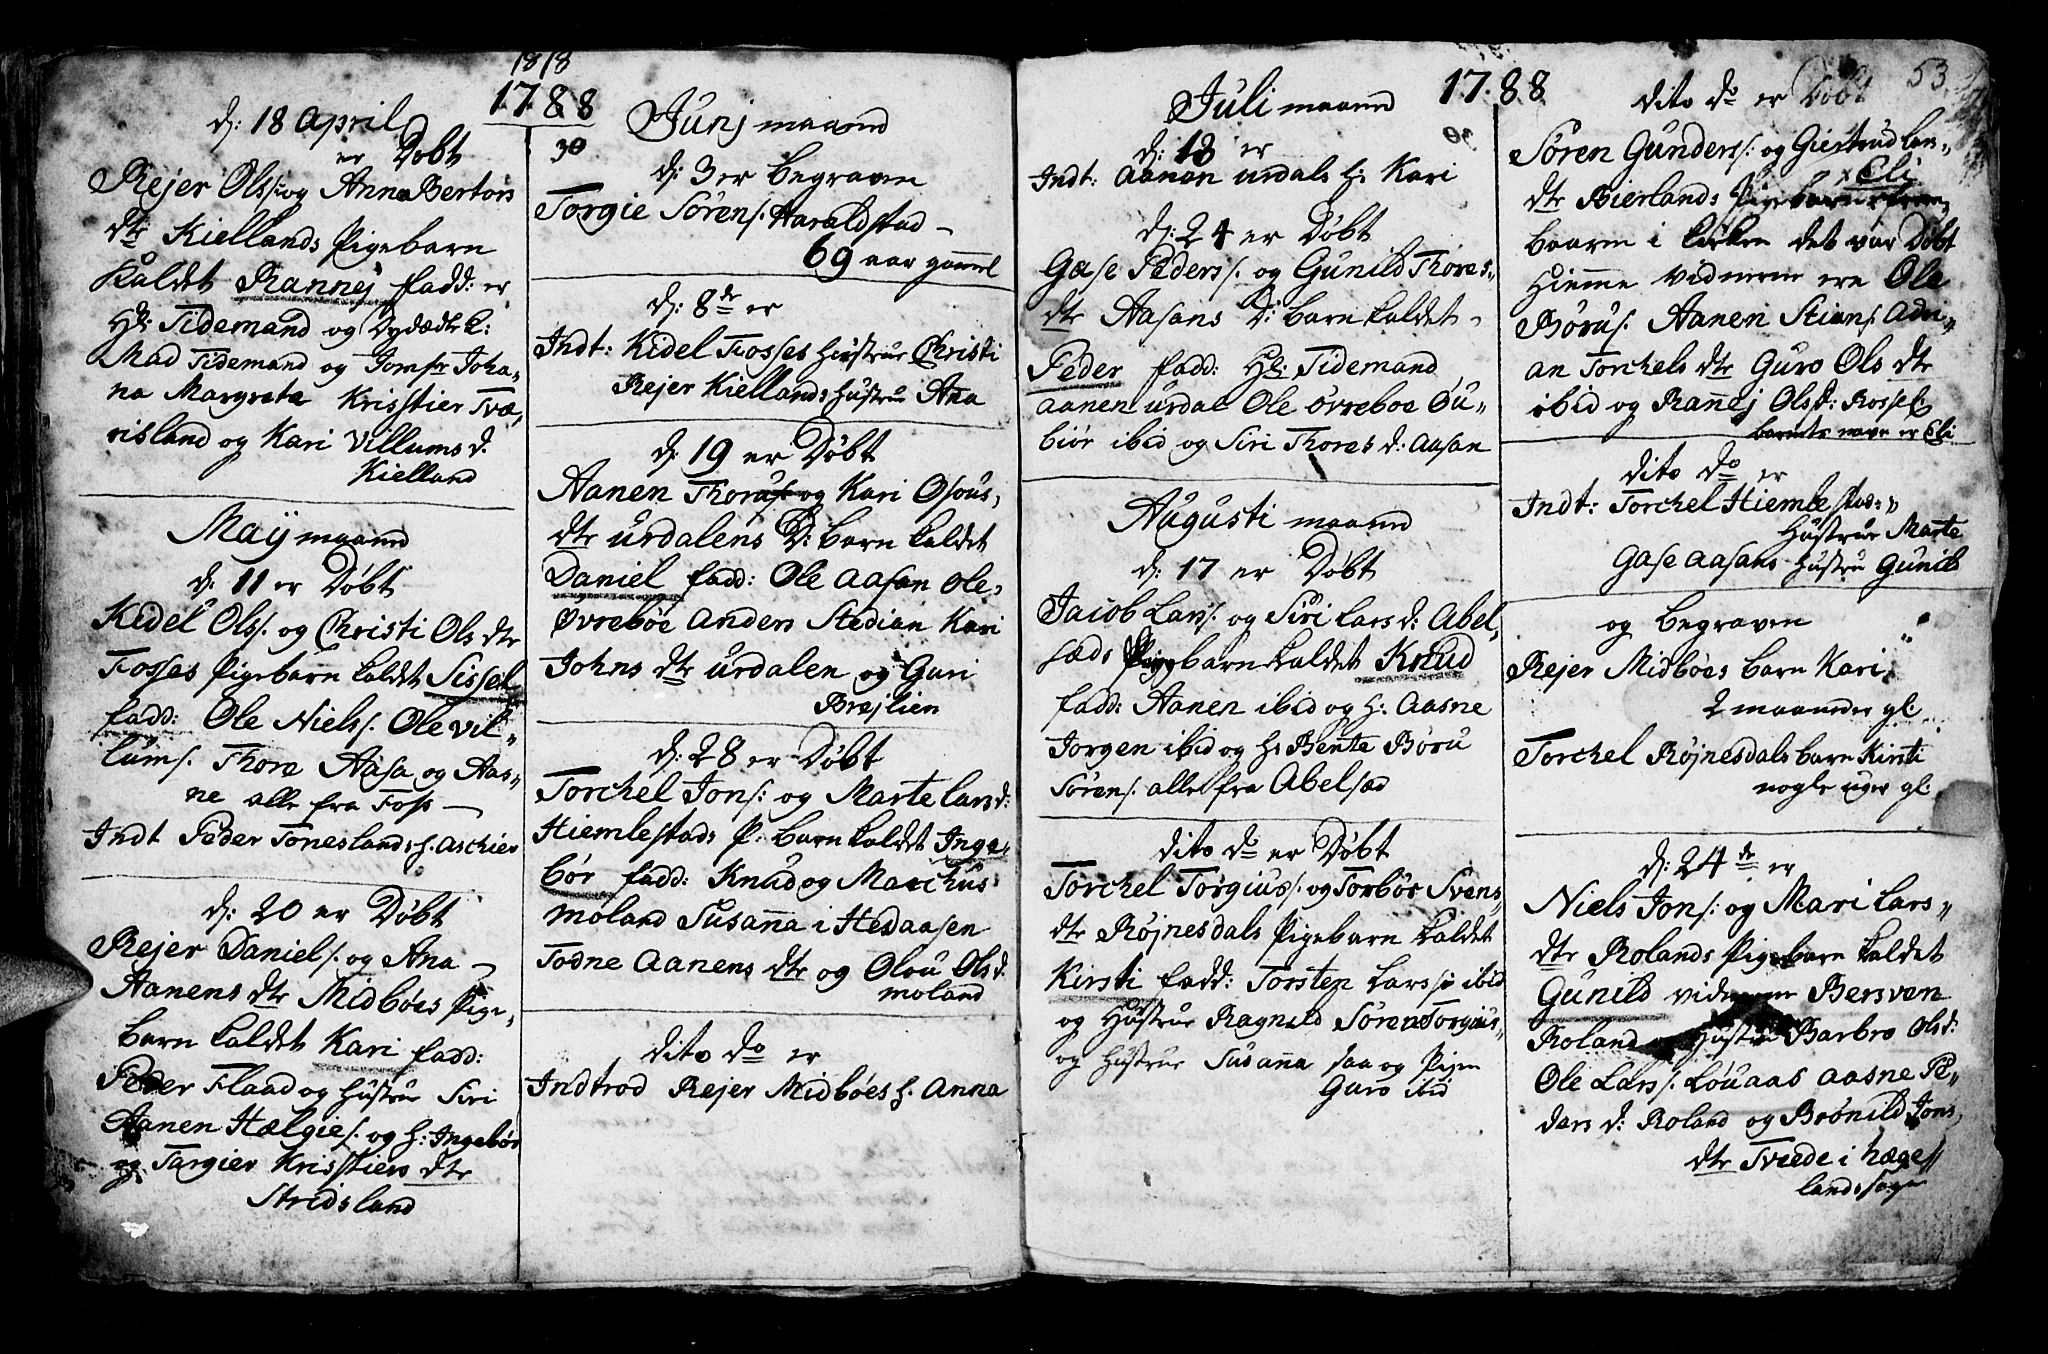 1818
1788
d: 18 April
er Døbt
Rejer Ols: og Anna Bertors
dtr Kiellands Pigebarn
kaldet Rannej fadd: er
Hr: Tidemand og
Mad Tidemand og Jomfr Joha„
na Margreta Krisstier Tvæ„
risland og Kari Villums d.
Kielland
Maij maaned
d: 11 er Døbt
Kedel Ols: og Christi Ols dtr
Fosses Pigebarn kaldet Sissel
fadd: Ole Niels: Ole Vil„
lums: Thore Aasa og Aas„
ne alle fra Foss
Indt Peder Toneslands h. Aschier
d: 20 er Døbt
Rejer Daniels: og Ana
Aanens dtr Midbøes Pige„
barn kaldet Kari fadd:
Peder Flaad og Hustrue Siri
Aanen Hælgies: og h: Ingebør
og Targier Krisstiers dtr
Stridsland
30
Junj maaned
d: 3 er begraven
Torgie Sørens: Haraldstad
69 aar gamel
d: 8de er
Indt: Kidel Fosses Hustrue Christi
Rejer Kiellands Hustrue Ana
d: 19 er Døbt
Aanen Thorus: og Kari Osous„
dtr Urdalens D: barn kaldet
Daniel fadd: Ole Aasan Ole„
Øvrebøe Anders Stedian Kari
Johns dtr Urdalen og Guri
Brejlien
d: 28 er Døbt
Torchel Jons: og Marte Lars d:
Hiemlestads P: barn kaldet Inge„
bør fadd: Knud og Marchus
Moland Susanna i Hedaasen
Todne Aanens dtr og Olou Ols d.
Moland
dito do er
Indtrod Rejer Midbøes h. Anna
Juli maaned
1788
53
d: 13 er
Indt: Aanen Urdals h: Kari
d: 24 er Døbt
Gase Peders: og Gunild Thores„
dtr Aasans D: barn kaldet
Peder fadd: Hr: Tidemand
Aanen Urdal Ole Øvreboe Gu„
biør ibid og Siri Thores d: Aasan
Augusti maaned
d: 17 er Døbt
Jacob Lars: og Siri Lars d: Abel„
sæds Pigebarn kaldet Knud
fadd: Aanen ibid og h: Aasne
Jorgen ibid og h: Bente Børu
Sørens: alle fra Abelsæd
dito do er Døbt
Torchel Torgius: og Torbør Svens„
dtr Røjnesdals Pigebarn kaldet
Kirsti fadd: Torsten Lars: ibid
og Hustrue Ragnild Søren Torgius„
og Hustrue Susanna saa og Pigen
Guro ibid
dito do er Døbt
Søren Gunders: og Giertrud Lars„
dtr Bierlands Pigebarn Eli
baaren i kirken det var Døbt
Hiemme Vidnerne ere Ole
Børus: Aanen Stians: Adri„
an Torchels dtr Guro Ols dtr
ibid og Rannej Ols d: Rossel:
barnets navn er Eli
dito do er
Indt: Torchel Hiemlestads„
Hustrue Marte
Gase Aasans Hustru Gunild
og begraven
Rejer Midbøes barn Kari
2 maaneder gl:
Torchel Røjnesdals barn Kirsti
nogle uger gl:
d: 24de er
Niels Jons: og Mari Lars„
dtr Rolands Pigebarn kaldet
Gunild vidnerne Bersven
Roland og Hustrue Barbro Ols d:
Ole Lars: Løuaas Aasne Pe„
ders d: Roland og Brønild Jons„
dtr Tveede i hæge„
lands sogn